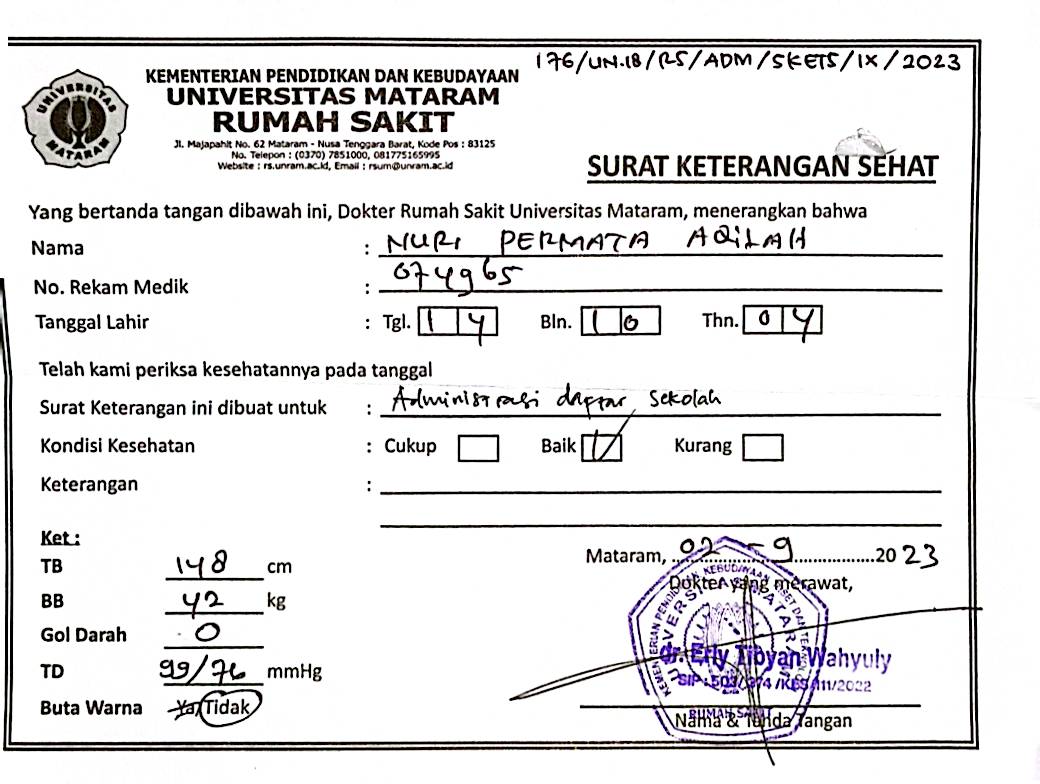 176/UN.18/RS/ADM/SKETS/IX/2023
UNIVERSITAS MATARAM
KEMENTERIAN PENDIDIKAN DAN KEBUDAYAAN
UNIVERSITAS MATARAM
RUMAH SAKIT
Jl. Majapahit No. 62 Mataram - Nusa Tenggara Barat, Kode Pos : 83125
No. Telepon : (0370) 7851000, 081775165995
Website : rs.unram.ac.id, Email : rsum@unram.ac.id
SURAT KETERANGAN SEHAT
Yang bertanda tangan dibawah ini, Dokter Rumah Sakit Universitas Mataram, menerangkan bahwa
Nama : NURI PERMATA AQILAH
No. Rekam Medik : 074965
Tanggal Lahir : Tgl. 14 Bln. 10 Thn. 04
Telah kami periksa kesehatannya pada tanggal
Surat Keterangan ini dibuat untuk : Administrasi daftar sekolah
Kondisi Kesehatan : Cukup Baik Kurang
Keterangan :
Ket :
TB 148 cm
BB 42 kg
Gol Darah O
TD 99/76 mmHg
Buta Warna Ya/Tidak
Mataram, 02 - 9 2023
Dokter yang merawat,
KEMENTERIAN PENDIDIKAN KEBUDAYAAN RISET DAN TEKNOLOGI
UNIVERSITAS MATARAM
RUMAH SAKIT
dr. Erly Tibyan Wahyuly
SIP : 503/374/KES/III/2022
Nama & Tanda Tangan